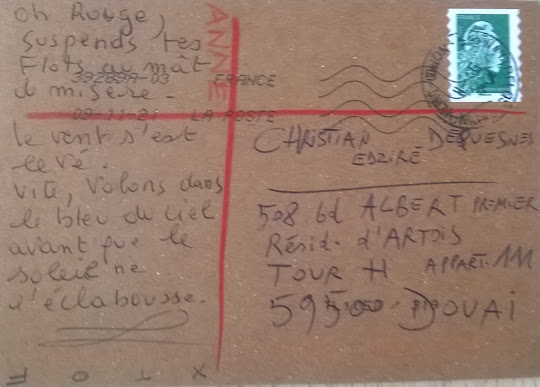 Oh Rouge,
suspends tes
Flots au mât
d misère.
le vent s'est
levé.
vite, volons dans
le bleu du ciel
avant que le
soleil ne
l'éclabousse.
ANNE
392899A-03 FRANCE
09-11-21 LA POSTE
CHRISTIAN DEQUESNES
EDZIRÉ
508 bd ALBERT PREMIER
Résid. d'ARTOIS
TOUR H APPART. 111
DOUAI